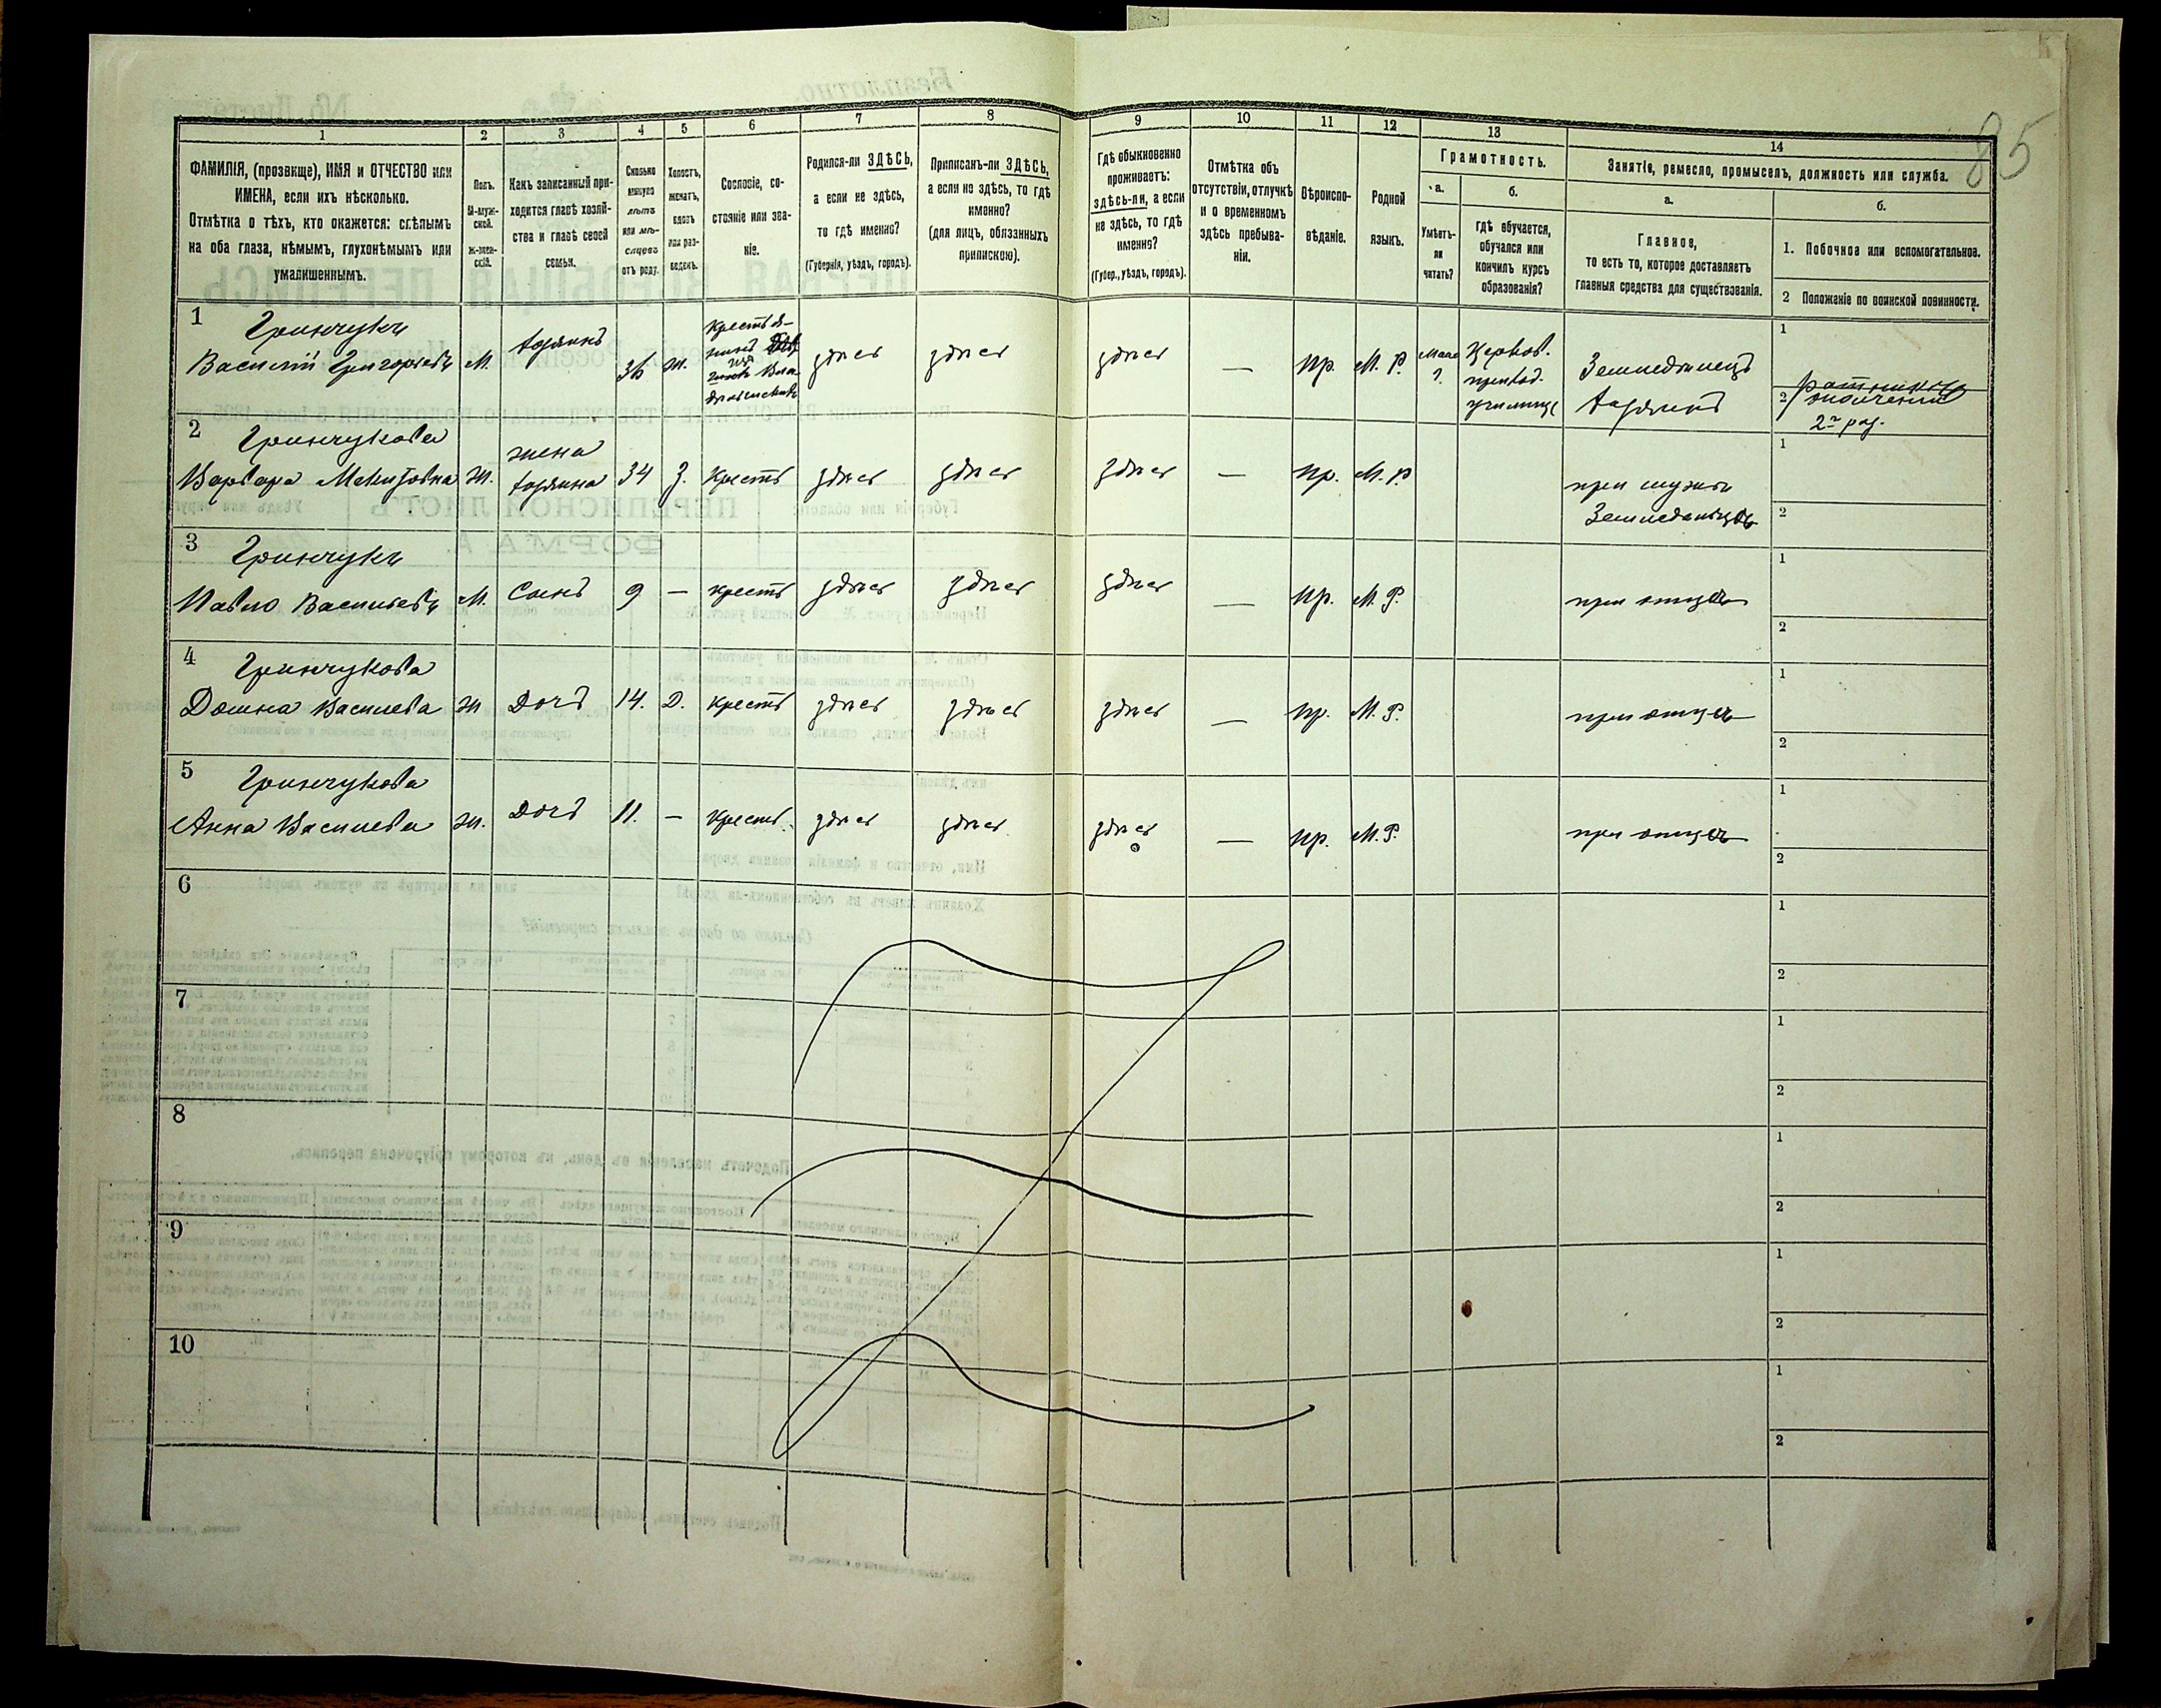 85
1 2 3 4 5 6 7 8 9 10 11 12 13 14
ФАМИЛІЯ, (прозвище), ИМЯ и ОТЧЕСТВО или
ИМЕНА, если ихъ нѣсколько.
Отмѣтка о тѣхъ, кто окажется: слѣпымъ
на оба глаза, нѣмымъ, глухонѣмымъ или
умалишеннымъ.
Полъ.
М-муж-
ской.
ж-жен-
скій.
Какъ записанный при-
ходится главѣ хозяй-
ства и главѣ своей
семьи.
Сколько
минуло
лѣтъ
или мѣ-
сяцевъ
отъ роду.
Холостъ,
женатъ,
вдовъ
или раз-
веденъ.
Сословіе, со-
стояніе или зва-
ніе.
Родился-ли ЗДѢСЬ,
а если не здѣсь,
то гдѣ именно?
(Губернія, уѣздъ, городъ).
Приписанъ-ли ЗДѢСЬ,
а если не здѣсь, то гдѣ
именно?
(для лицъ, обязанныхъ
припискою).
Гдѣ обыкновенно
проживаетъ:
здѣсь-ли, а если
не здѣсь, то гдѣ
именно?
(Губер., уѣздъ, городъ).
Отмѣтка объ
отсутствіи, отлучкѣ
и о временномъ
здѣсь пребыва-
ніи.
Вѣроиспо-
вѣданіе.
Родной
языкъ.
Грамотность.
а.
Умѣетъ-
ли
читать?
б.
Гдѣ обучается,
обучался или
кончилъ курсъ
образованія?
Занятіе, ремесло, промыселъ, должность или служба.
а.
Главное,
то есть то, которое доставляетъ
главныя средства для существованія.
б.
1. Побочное или вспомогательное.
2 Положеніе по воинской повинности.
1 Гринчукъ
Василій Григорьевъ М. хозяинъ 36 ж. крестья-
здѣсь здѣсь здѣсь — пр. М. Р.
Церков.
приход.
училище
Земледѣлецъ
хозяинъ
1
2 ратникъ
ополченія
2го раз.
2 Гринчукова
Варвара ж. жена
хозяина 34 З. крестьян здѣсь здѣсь здѣсь — пр. М. Р
при мужѣ
Земледѣльцѣ
1
2
3 Гринчукъ
Павло Васильевъ М. Сынъ 9 — крестьян здѣсь здѣсь здѣсь — пр. М. Р. при отцѣ
1
2
4 Гринчукова
Домна Василева ж Дочь 14. Д. крестьян здѣсь здѣсь здѣсь — пр. М. Р. при отцѣ
1
2
5 Гринчукова
Анна Василева ж. Дочь 11. — крестьян здѣсь здѣсь здѣсь — пр. М. Р. при отцѣ
1
2
6
1
2
7
1
2
8
1
2
9
1
2
10
1
2